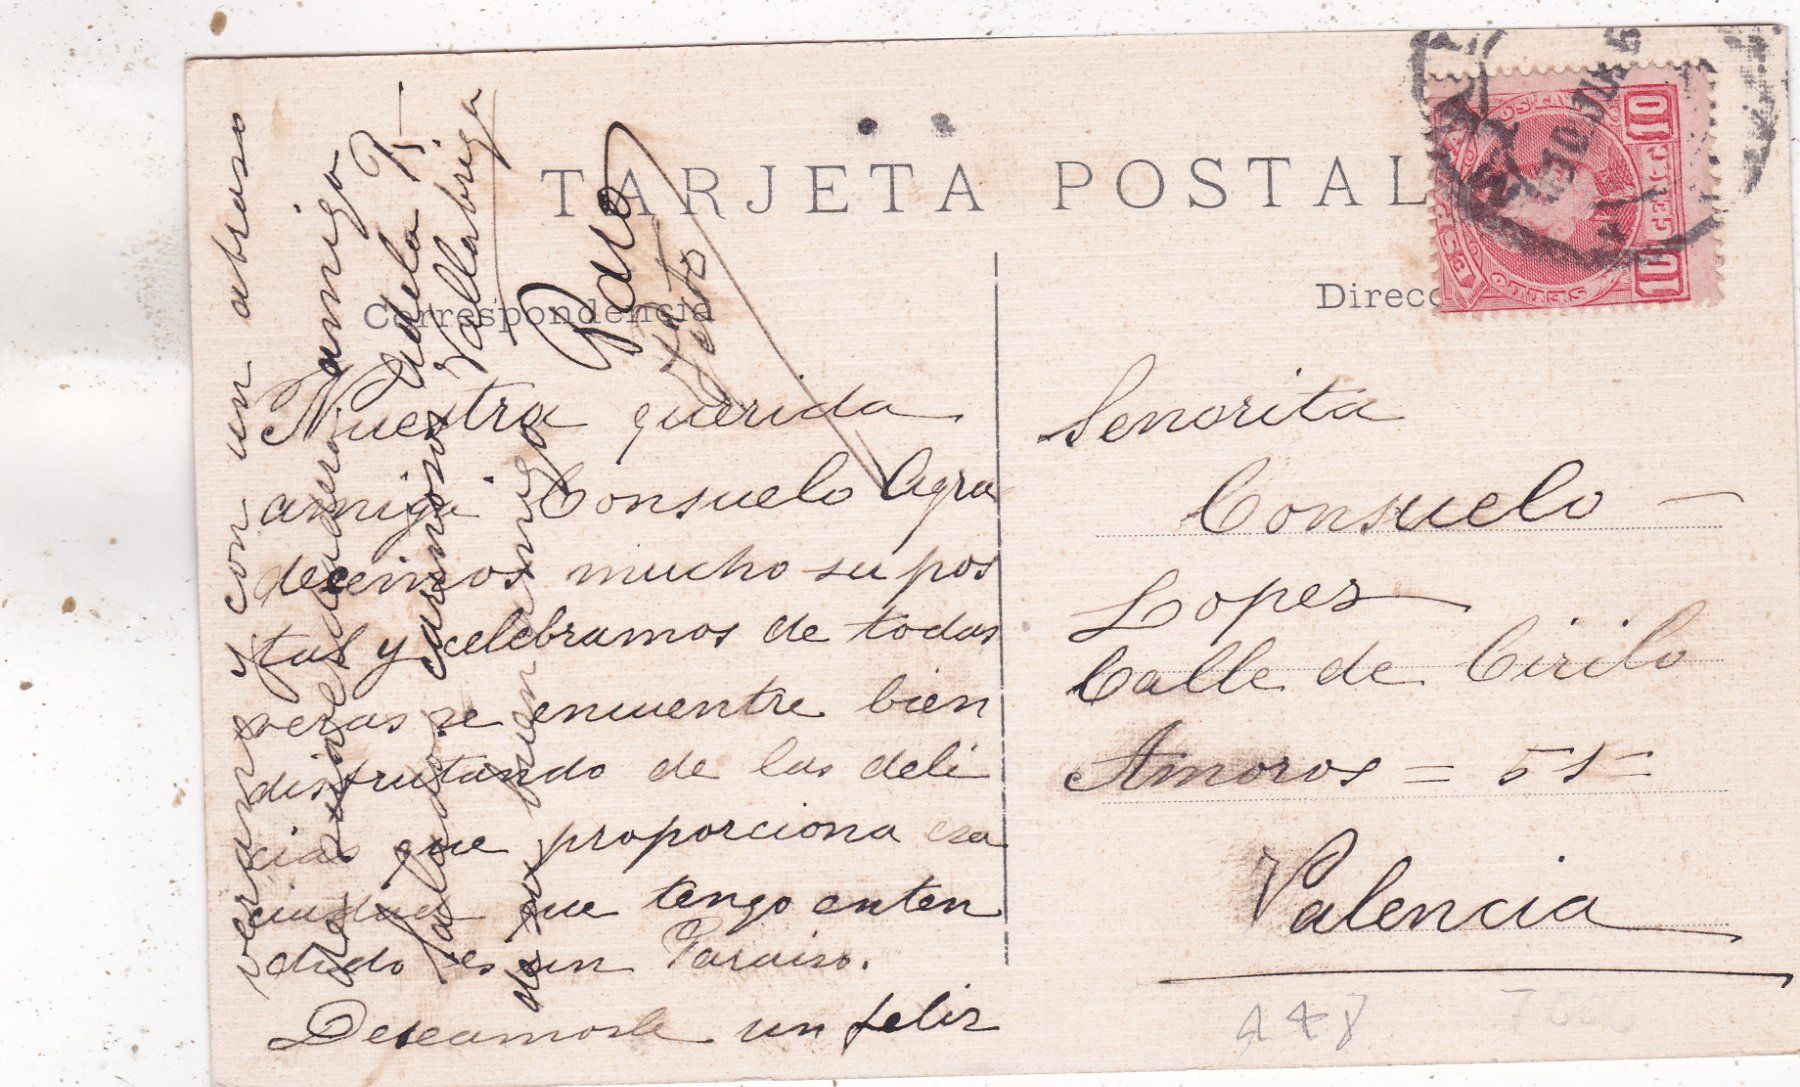 TARJETA POSTAL
Correspondencia
Direcc
Nuestra querida
amiga Consuelo Agra
decimos mucho su pos
tal y celebramos de todas
veras se encuentre bien
disfrutando de las deli
cias que proporciona esa
ciudad que tengo enten
dido es un Paraiso.
Deseamosle un feliz
verano y con un abraso
de su verdadera amiga
Adela P.
Saludos cariñosos Vallabriga
de su buen amigo
Paco
Señorita
Consuelo
Lopes
Calle de Cirilo
Amoros = 51=
Valencia
448
10 CENT.S 10